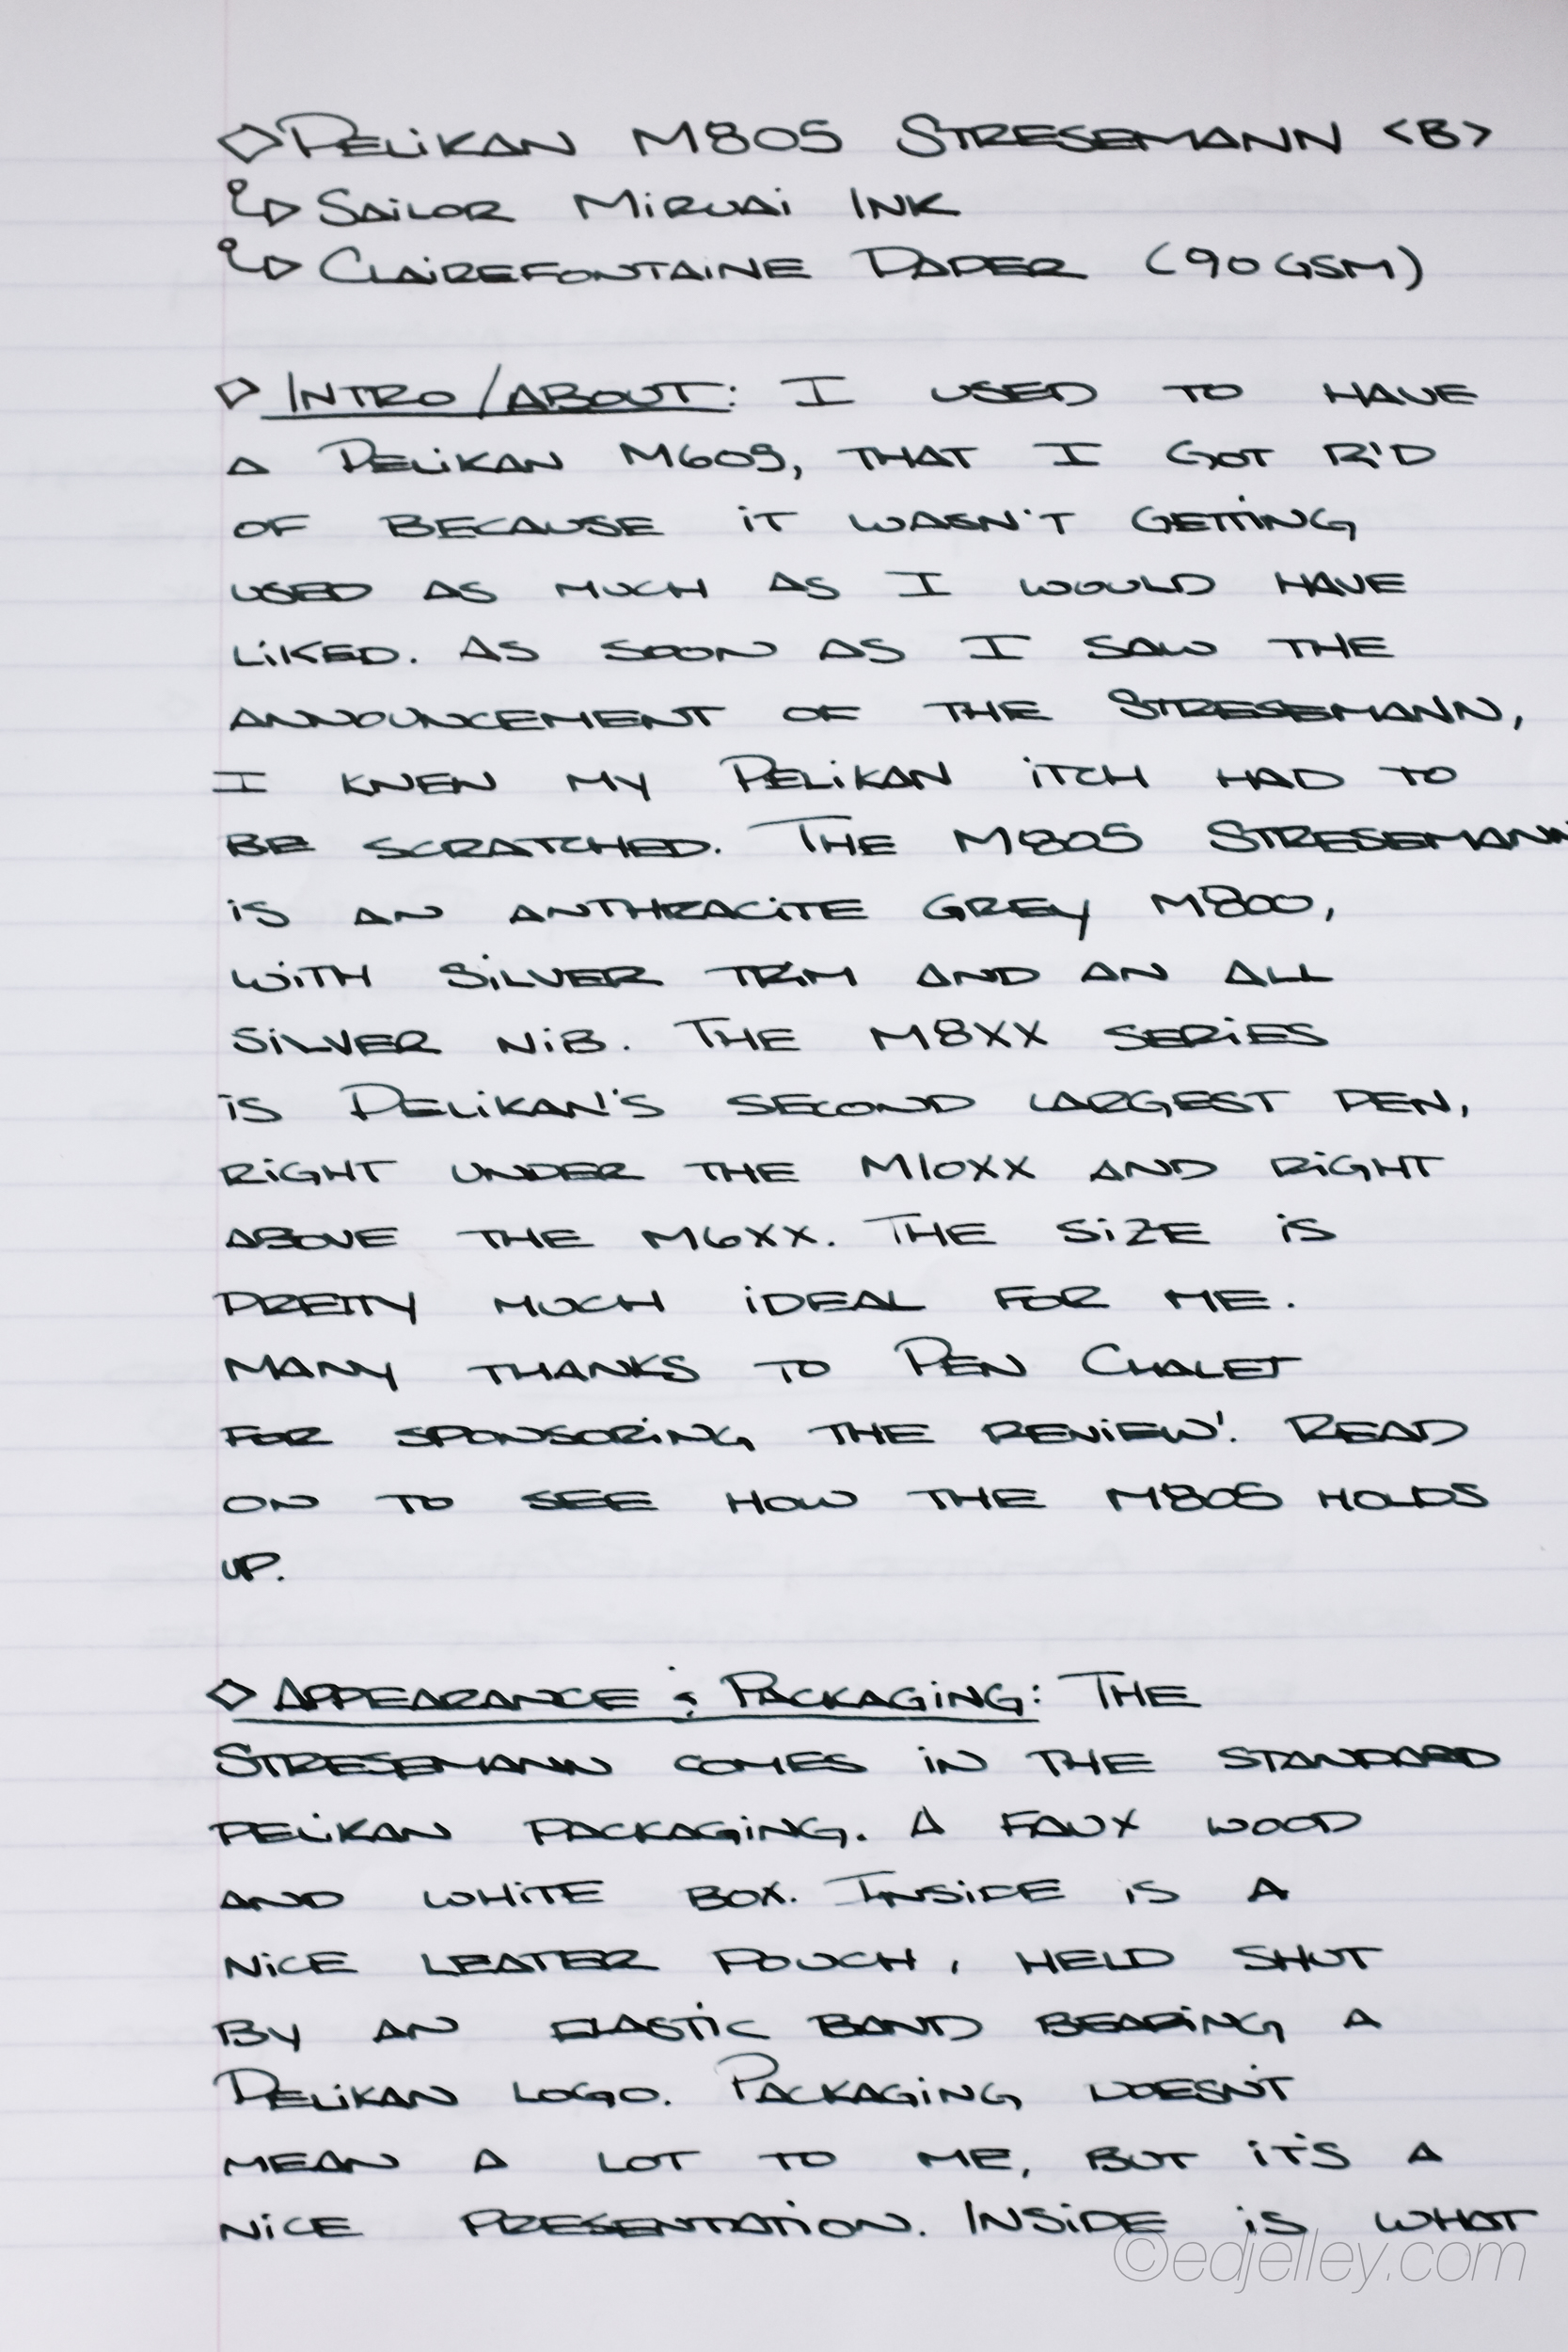 ◇ Pelikan M805 Stresemann <B>
↳ Sailor Miruai Ink
↳ Clairefontaine Paper (90 GSM)
◇ Intro/About: I used to have
a Pelikan M605, that I got rid
of because it wasn't getting
used as much as I would have
liked. As soon as I saw the
announcement of the Stresemann,
I knew my Pelikan itch had to
be scratched. The M805 Stresemann
is an anthracite grey M800,
with silver trim and an all
silver nib. The M8XX series
is Pelikan's second largest pen,
right under the M10XX and right
above the M6XX. The size is
pretty much ideal for me.
Many thanks to Pen Chalet
for sponsoring the review! Read
on to see how the M805 holds
up.
◇ Appearance & Packaging: The
Stresemann comes in the standard
Pelikan packaging. A faux wood
and white box. Inside is a
nice leater pouch, held shut
by an elastic band bearing a
Pelikan logo. Packaging doesn't
mean a lot to me, but it's a
nice presentation. Inside is what
©edjelley.com